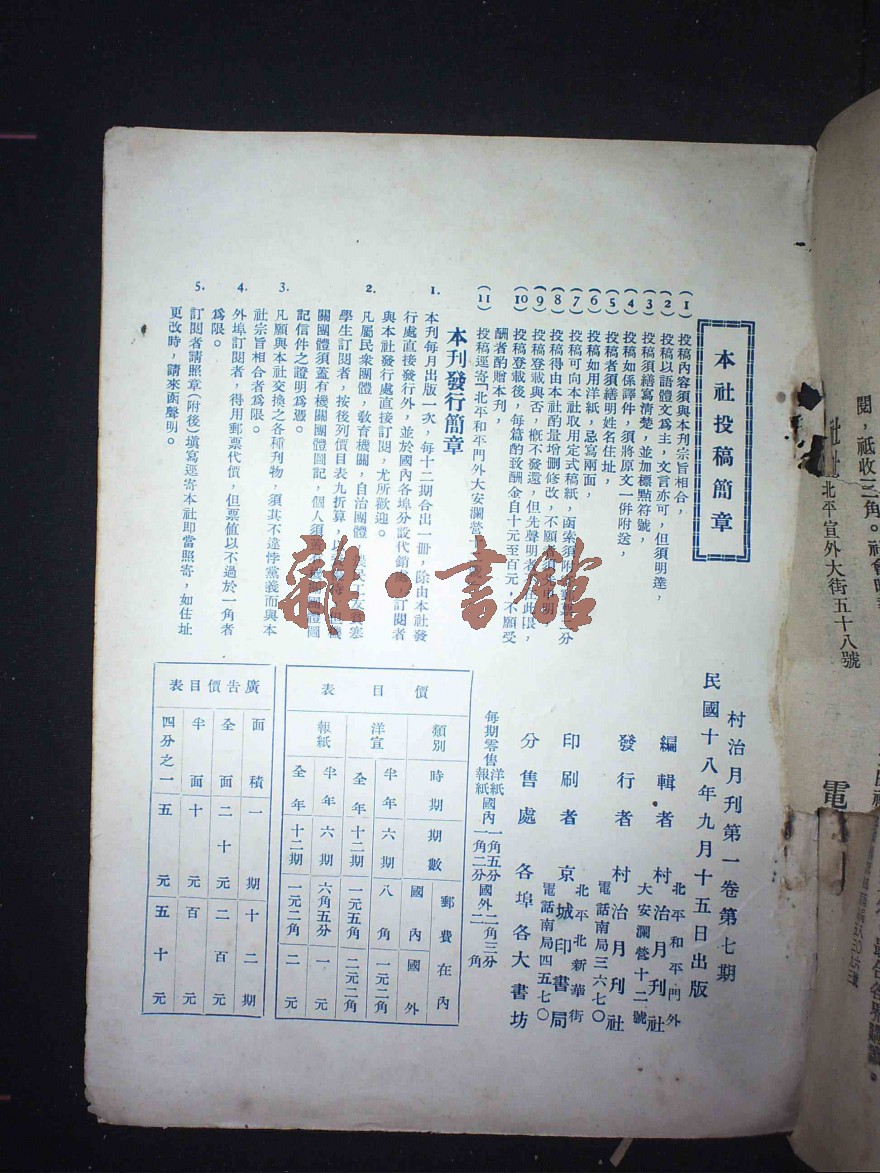 本社投稿簡章
(1) 投稿內容須與本刊宗旨相合，
(2) 投稿以語體文爲主，文言亦可，但須明達，
(3) 投稿須繕寫清楚，並加標點符號，
(4) 投稿如係譯件，須將原文一併附送，
(5) 投稿者須繕明姓名住址，
(6) 投稿如用洋紙，忌寫兩面，
(7) 投稿可向本社取用定式稿紙，函索須附郵票二分
(8) 投稿得由本社酌量增删修改，不願者須先申明，
(9) 投稿登載與否，槪不發還，但先聲明者不在此限，
(10) 投稿登載後，每篇酌致酬金自十元至百元，不願受
酬者酌贈本刊，
(11) 投稿逕寄「北平和平門外大安瀾營十二號
本刊發行簡章
1. 本刊每月出版一次，每十二期合出一册，除由本社發
行處直接發行外，並於國內各埠分設代銷處，訂閱者
與本社發行處直接訂閱，尤所歡迎。
2. 凡屬民衆團體，敎育機關，自治團體
學生訂閱者，按後列價目表九折算，以
關團體須蓋有機關團體圖記，個人須
機關團體圖
記信件之證明爲憑。
3. 凡願與本社交換之各種刊物，須其不違悖黨義而與本
社宗旨相合者爲限。
4. 外埠訂閱者，得用郵票代價，但票値以不過於一角者
爲限。
5. 訂閱者請照章(附後)塡寫逕寄本社即當照寄，如住址
更改時，請來函聲明。
村治月刊第一卷第七期
民國十八年九月十五日出版
編輯者 村治月刊社
北平和平門外
大安瀾營十二號
發行者 村治月刊社
電話南局三六七〇
印刷者 京城印書局
北平北新華街
電話南局四五七〇
分售處 各埠各大書坊
每期零售 洋紙國內一角五分國外二角三分
報紙國內一角二分國外二角
價目表
類別 時期 期數 郵費在內 國內 國外
洋宣 半年 六期 八角 一元二角
全年 十二期 一元五角 二元二角
報紙 半年 六期 六角五分 一元
全年 十二期 一元二角 二元
廣告價目表
面積 一期 十二期
全面 二十元 二百元
半面 十元 百元
四分之一 五元 五十元
雜·書館
閱，祇收二角。
社址 北平宣外大街五十八號
電